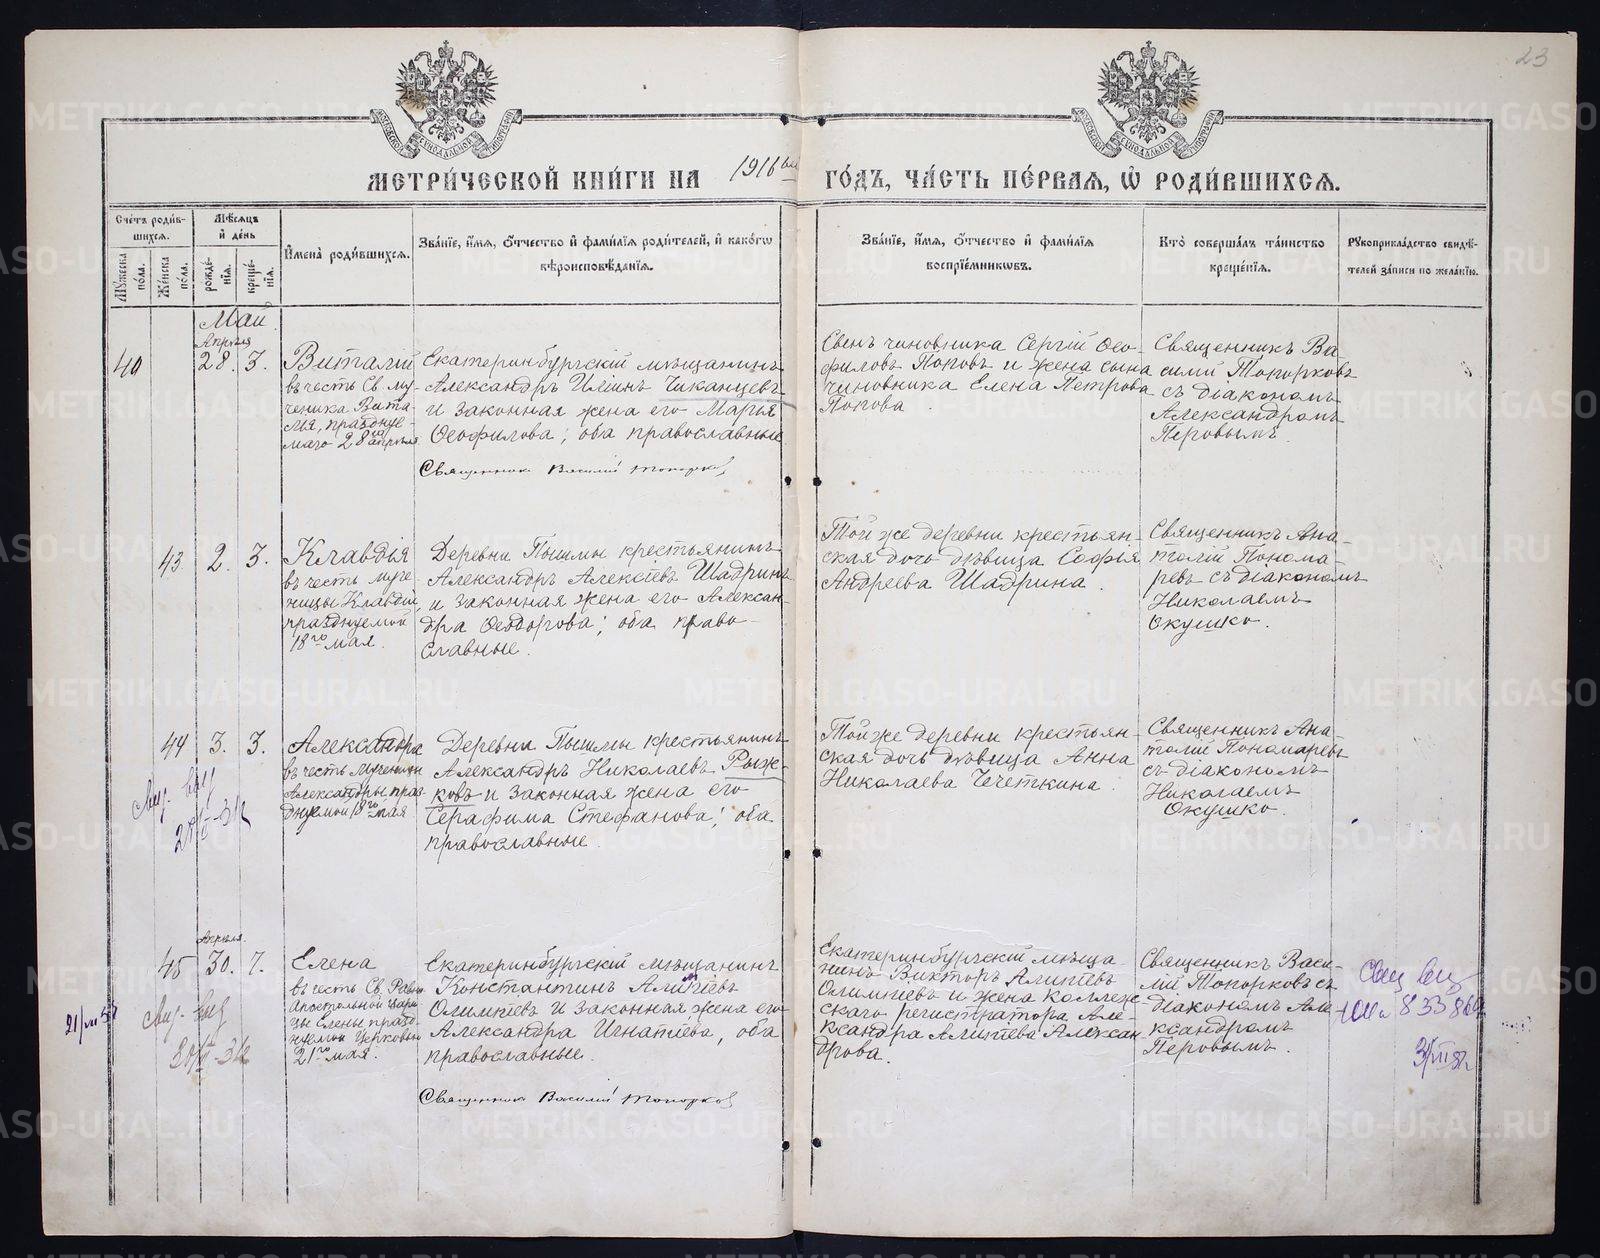 23
МЕТРИ́ЧЕСКОЙ КНИ́ГИ НА 1916 ГО́ДЪ, ЧА́СТЬ ПЕ́РВАЯ, Ѡ РОДИ́ВШИХСЯ.
Сче́тъ роди́в-
шихся.
Мѣ́сяцъ
и де́нь
Му́жеска
по́ла.
Же́нска
по́ла.
рожде́-
нїя.
креще́-
нїя.
Имена̀ роди́вшихся.
Зва́нїе, и́мя, о́тчество и фами́лїя роди́телей, и како́гѡ
вѣроисповѣ́данїя.
Зва́нїе, и́мя, о́тчество и фами́лїя
воспрїе́мникωвъ.
Кто̀ соверша́лъ та́инство
креще́нїя.
Рукоприкла́дство свидѣ́-
телей за́писи по жела́нїю.
Май.
Апрѣля
40
28. 3.
Виталій
въ честь Св. му-
ченика Вита-
лія, праздуе-
маго 28го апрѣля
Екатеринбургскій мѣщанинъ
Александръ Ильинъ Чиканцевъ
и законная жена его Марья
Ѳеофилова; оба православные
Священникъ Василій Топорков
Сынъ чиновника Сергій Ѳео-
филовъ Поповъ и жена сына
чиновника Елена Петрова
Попова.
Священникъ Ва-
силій Топорковъ
съ діакономъ
Александромъ
Перовымъ.
43. 2. 3.
Клавдія
въ честь муче-
ницы Клавдіи,
празднуемой
18го мая.
Деревни Пышмы крестьянинъ
Александръ Алексіевъ Шадринъ
и законная жена его Алексан-
дра Ѳеодорова; оба право-
славные.
Той же деревни крестьян-
ская дочь дѣвица Софія
Андреева Шадрина.
Священникъ Ана-
толій Понома-
ревъ съ діакономъ
Николаемъ
Окушко.
44 3. 3.
Александра
въ честь мученицы
Александры праз-
днуемой 18го мая
Деревни Пышмы крестьянинъ
Александръ Николаевъ Рыж-
ковъ и законная жена его
Серафима Стефанова; оба
православные.
Той же деревни крестьян-
ская дочь дѣвица Анна
Николаева Чечеткина.
Священникъ Ана-
толій Пономаревъ
съ діакономъ
Николаемъ
Окушко.
Апрѣля.
45 30. 7.
Елена
въ честь Св. Равно
апостольной цари-
цы Елены празд-
нуемой Церковью
21го мая.
Екатеринбургскій мѣщанинъ
Константинъ Алипіевъ
Олимпіевъ и законная жена его
Александра Игнатіева, оба
православные.
Священникъ Василій Топорков
Екатеринбургскій мѣща-
нинъ Викторъ Алипіевъ
Олимпіевъ и жена коллеж-
скаго регистратора Але-
ксандра Алипіева Алексан-
дрова.
Священникъ Васи-
лій Топорковъ съ
діакономъ Але-
ксандромъ
Перовымъ.
METRIKI.GASO-URAL.RU